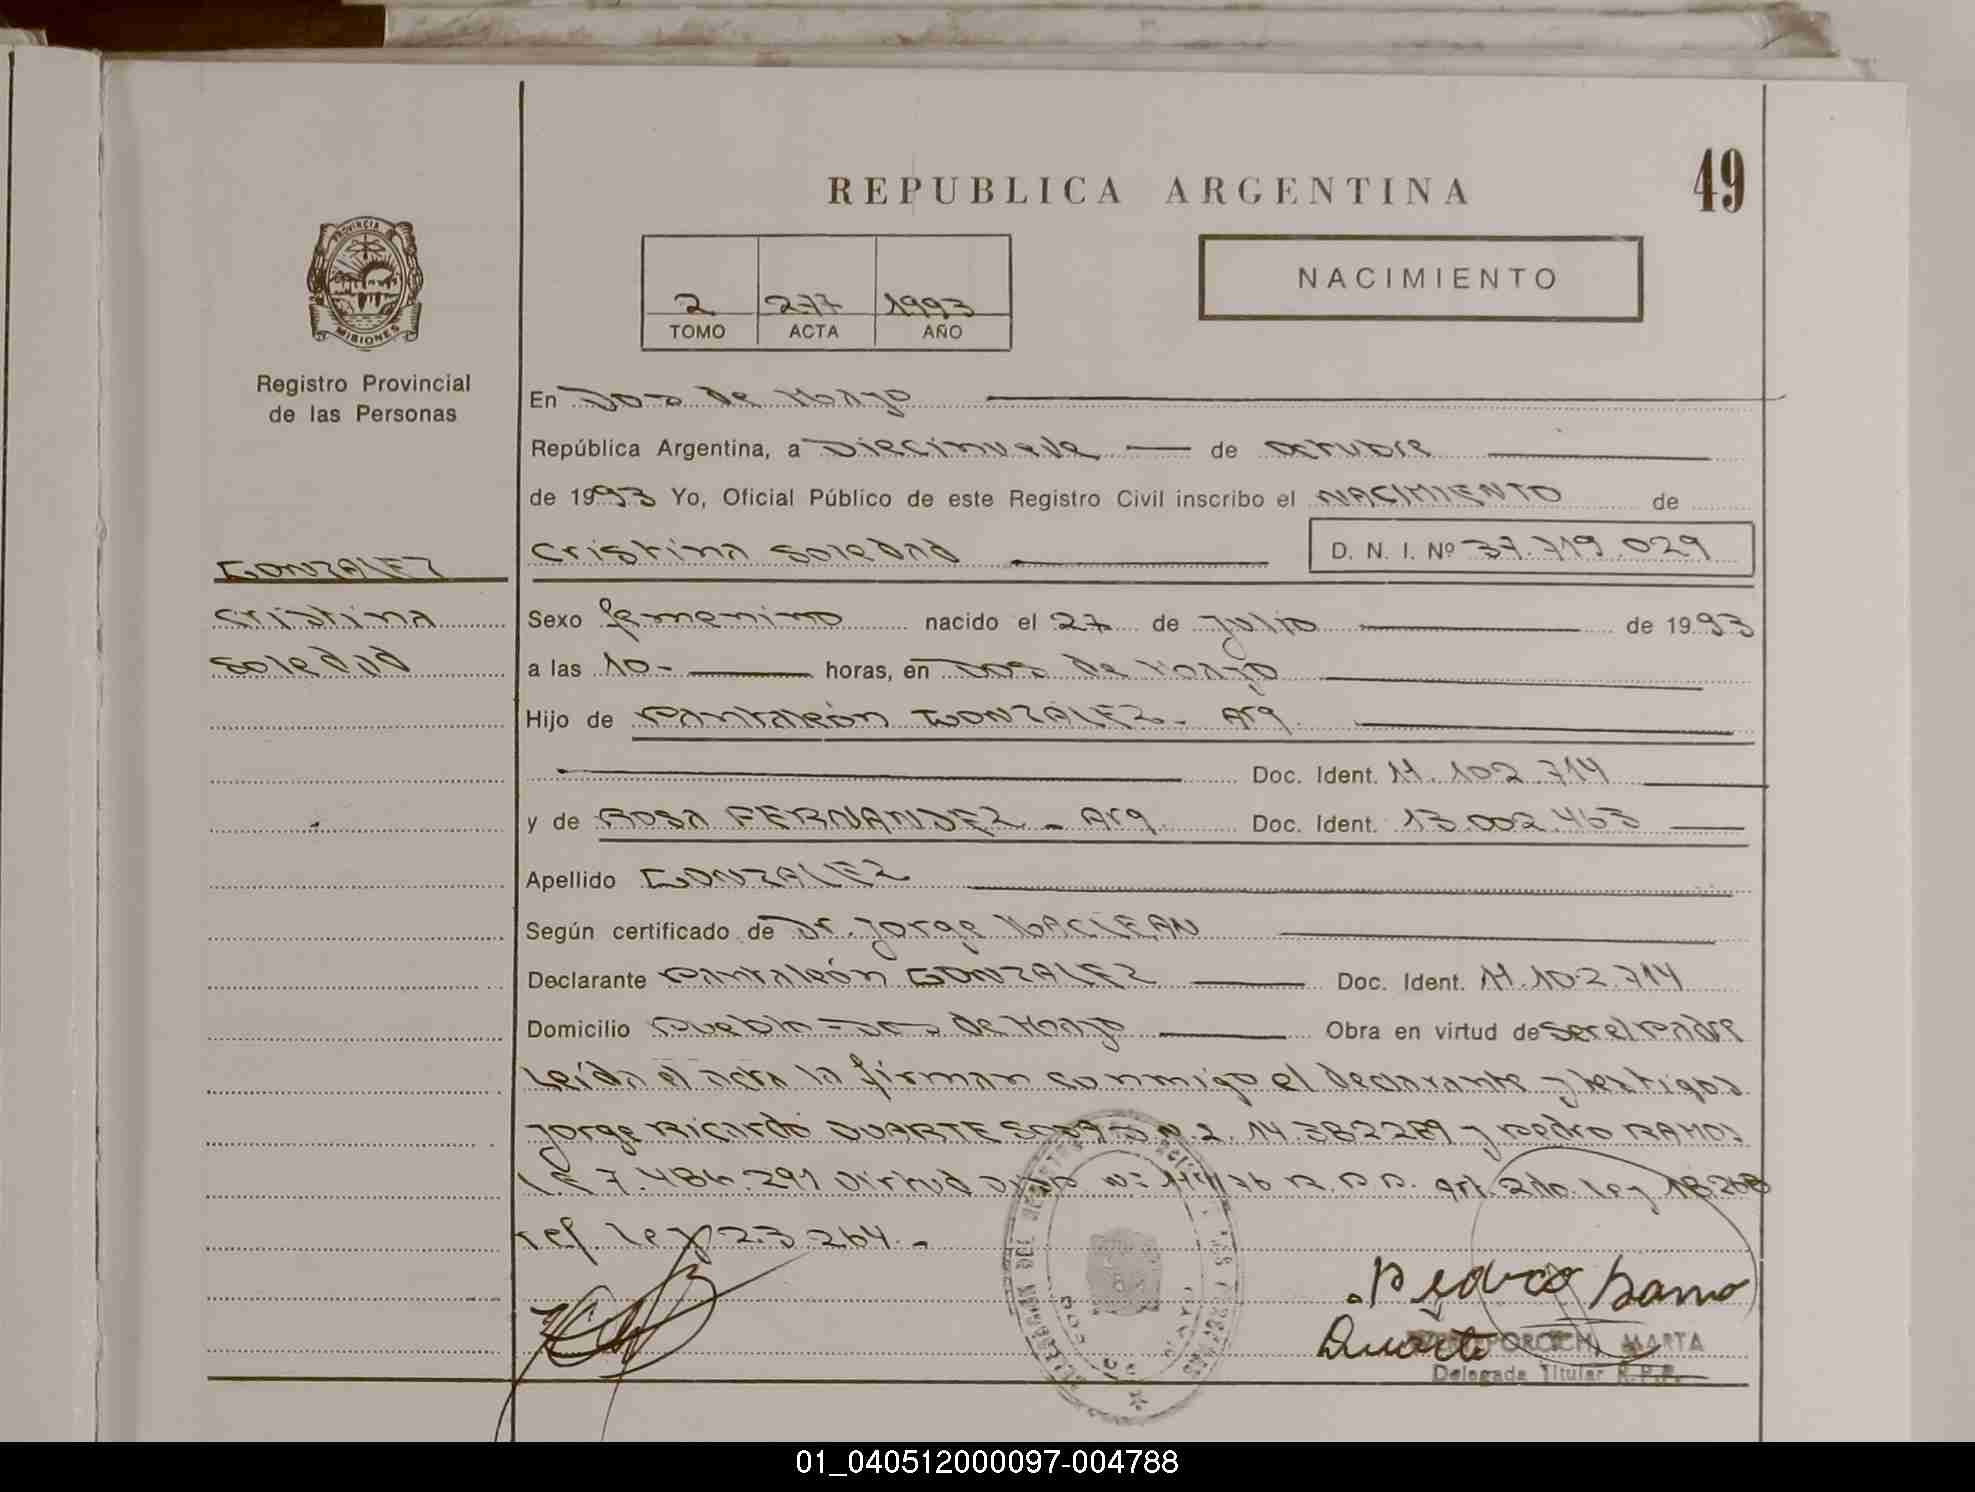 49
REPUBLICA ARGENTINA
PROVINCIA
MISIONES
Registro Provincial
de las Personas
NACIMIENTO
2 277 1993
TOMO ACTA AÑO
En Dos de Mayo
República Argentina, a Diecinueve de octubre
de 1993 Yo, Oficial Público de este Registro Civil inscribo el NACIMIENTO de
GONZALEZ
Cristina Soledad D. N. I. Nº 37.719.029
Cristina
Soledad
Sexo femenino nacido el 27 de Julio de 1993
a las 10- horas, en Dos de Mayo
Hijo de Pantaleón GONZALEZ - Arg.
Doc. Ident. 11.102.714
y de Rosa FERNANDEZ - Arg. Doc. Ident. 13.002.463
Apellido GONZALEZ
Según certificado de Dr. Jorge MACLEAN
Declarante Pantaleón GONZALEZ Doc. Ident. 11.102.714
Domicilio Pueblo Dos de Mayo Obra en virtud de ser el Padre
Leída el acta la firman conmigo el declarante y testigos
Jorge Ricardo DUARTE 14.382289 y Pedro RAMOS
LE 7.486.291 Art. 2do. Ley 18.248
ref. ley 23.264.-
Pedro Ramo
Duarte
MARTA
Delegada Titular R.P.P.
01_040512000097-004788